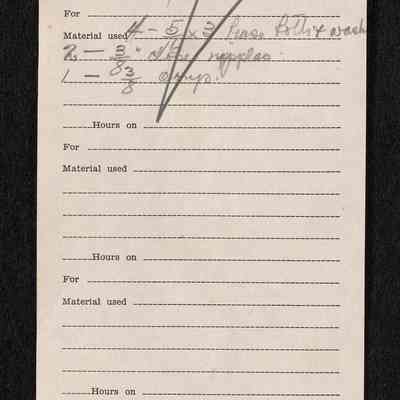 For
Material used 4 - 5/8 x 3 hose bolts & wash
2 - 3/8" close nipples
1 - 3/8
Hours on
For
Material used
Hours on
For
Material used
Hours on